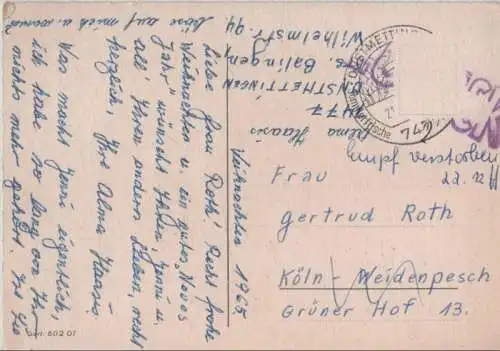 böse auf mich u. warum?
Weihnachten 1965
Liebe Frau Roth! Recht frohe
Weihnachten u. ein gutes "Neues
Jahr" wünscht Ihnen, Jenni u.
all' Ihren andern Lieben, recht
herzlich, Ihre Alma Haasis
Was macht Jenni eigentlich,
ich habe so lang von Ihr
nichts mehr gehört. Ist sie
Alma Haasis
7477
ONSTMETTINGEN
Krs. Balingen,
Wilhelmstr. 94
ONSTMETTINGEN
Sommerfrische
Empf verstorben
22.12
Frau
Gertrud Roth
Köln-Weidenpesch
Grüner Hof 13.
602 01